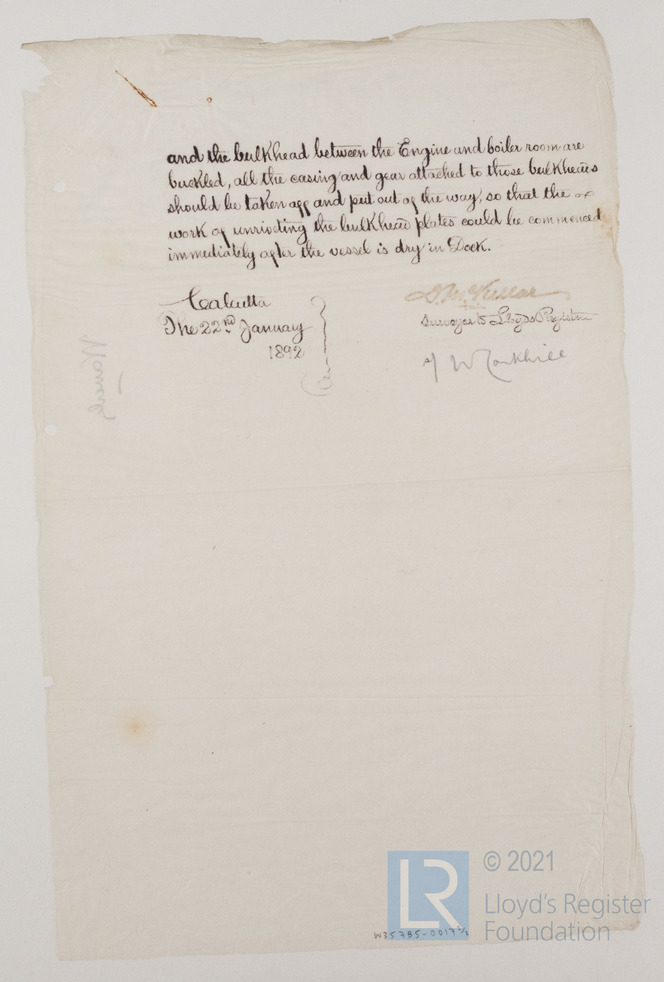 and the bulkhead between the Engine and boiler room are
buckled, all the casing and gear attached to those bulkheads
should be taken off and put out of the way, so that the
work of unriveting the bulkhead plates could be commenced
immediately after the vessel is dry in Dock.
Calcutta
The 22nd January
1892
Surveyor to Lloyds Register
W35785-0017 2/2
LR
© 2021
Lloyd's Register
Foundation